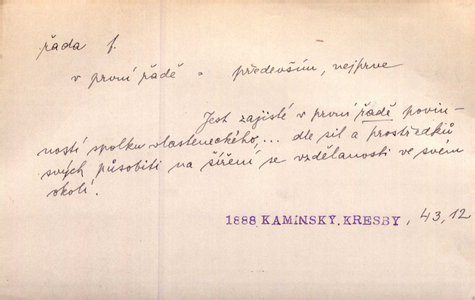 řada f.
v první řadě = především, nejprve
Jest zajisté v první řadě povin-
ností spolku vlasteneckého,... dle sil a prostředků
svých působiti na šíření se vzdělanosti ve svém
okolí.
1888 KAMINSKY, KRESBY, 43,12